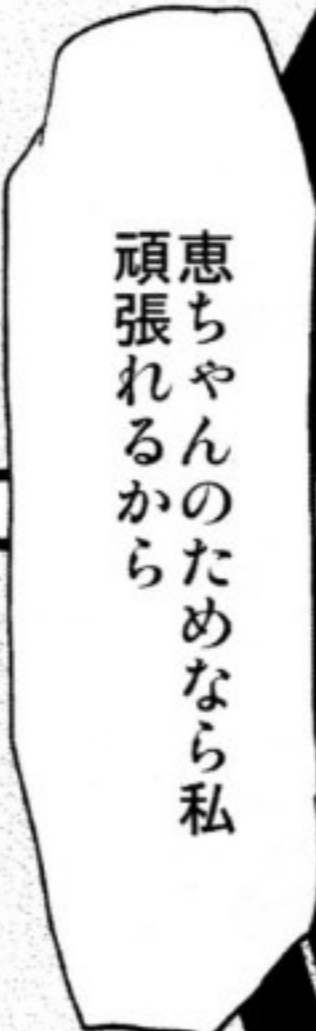 恵ちゃんのためなら私
頑張れるから